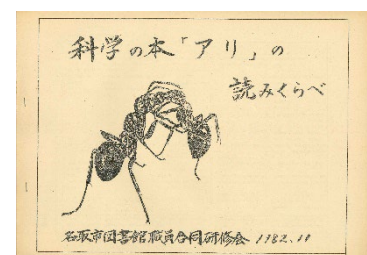 科学の本「アリ」の
読みくらべ
名取市図書館職員合同研修会 1982.11